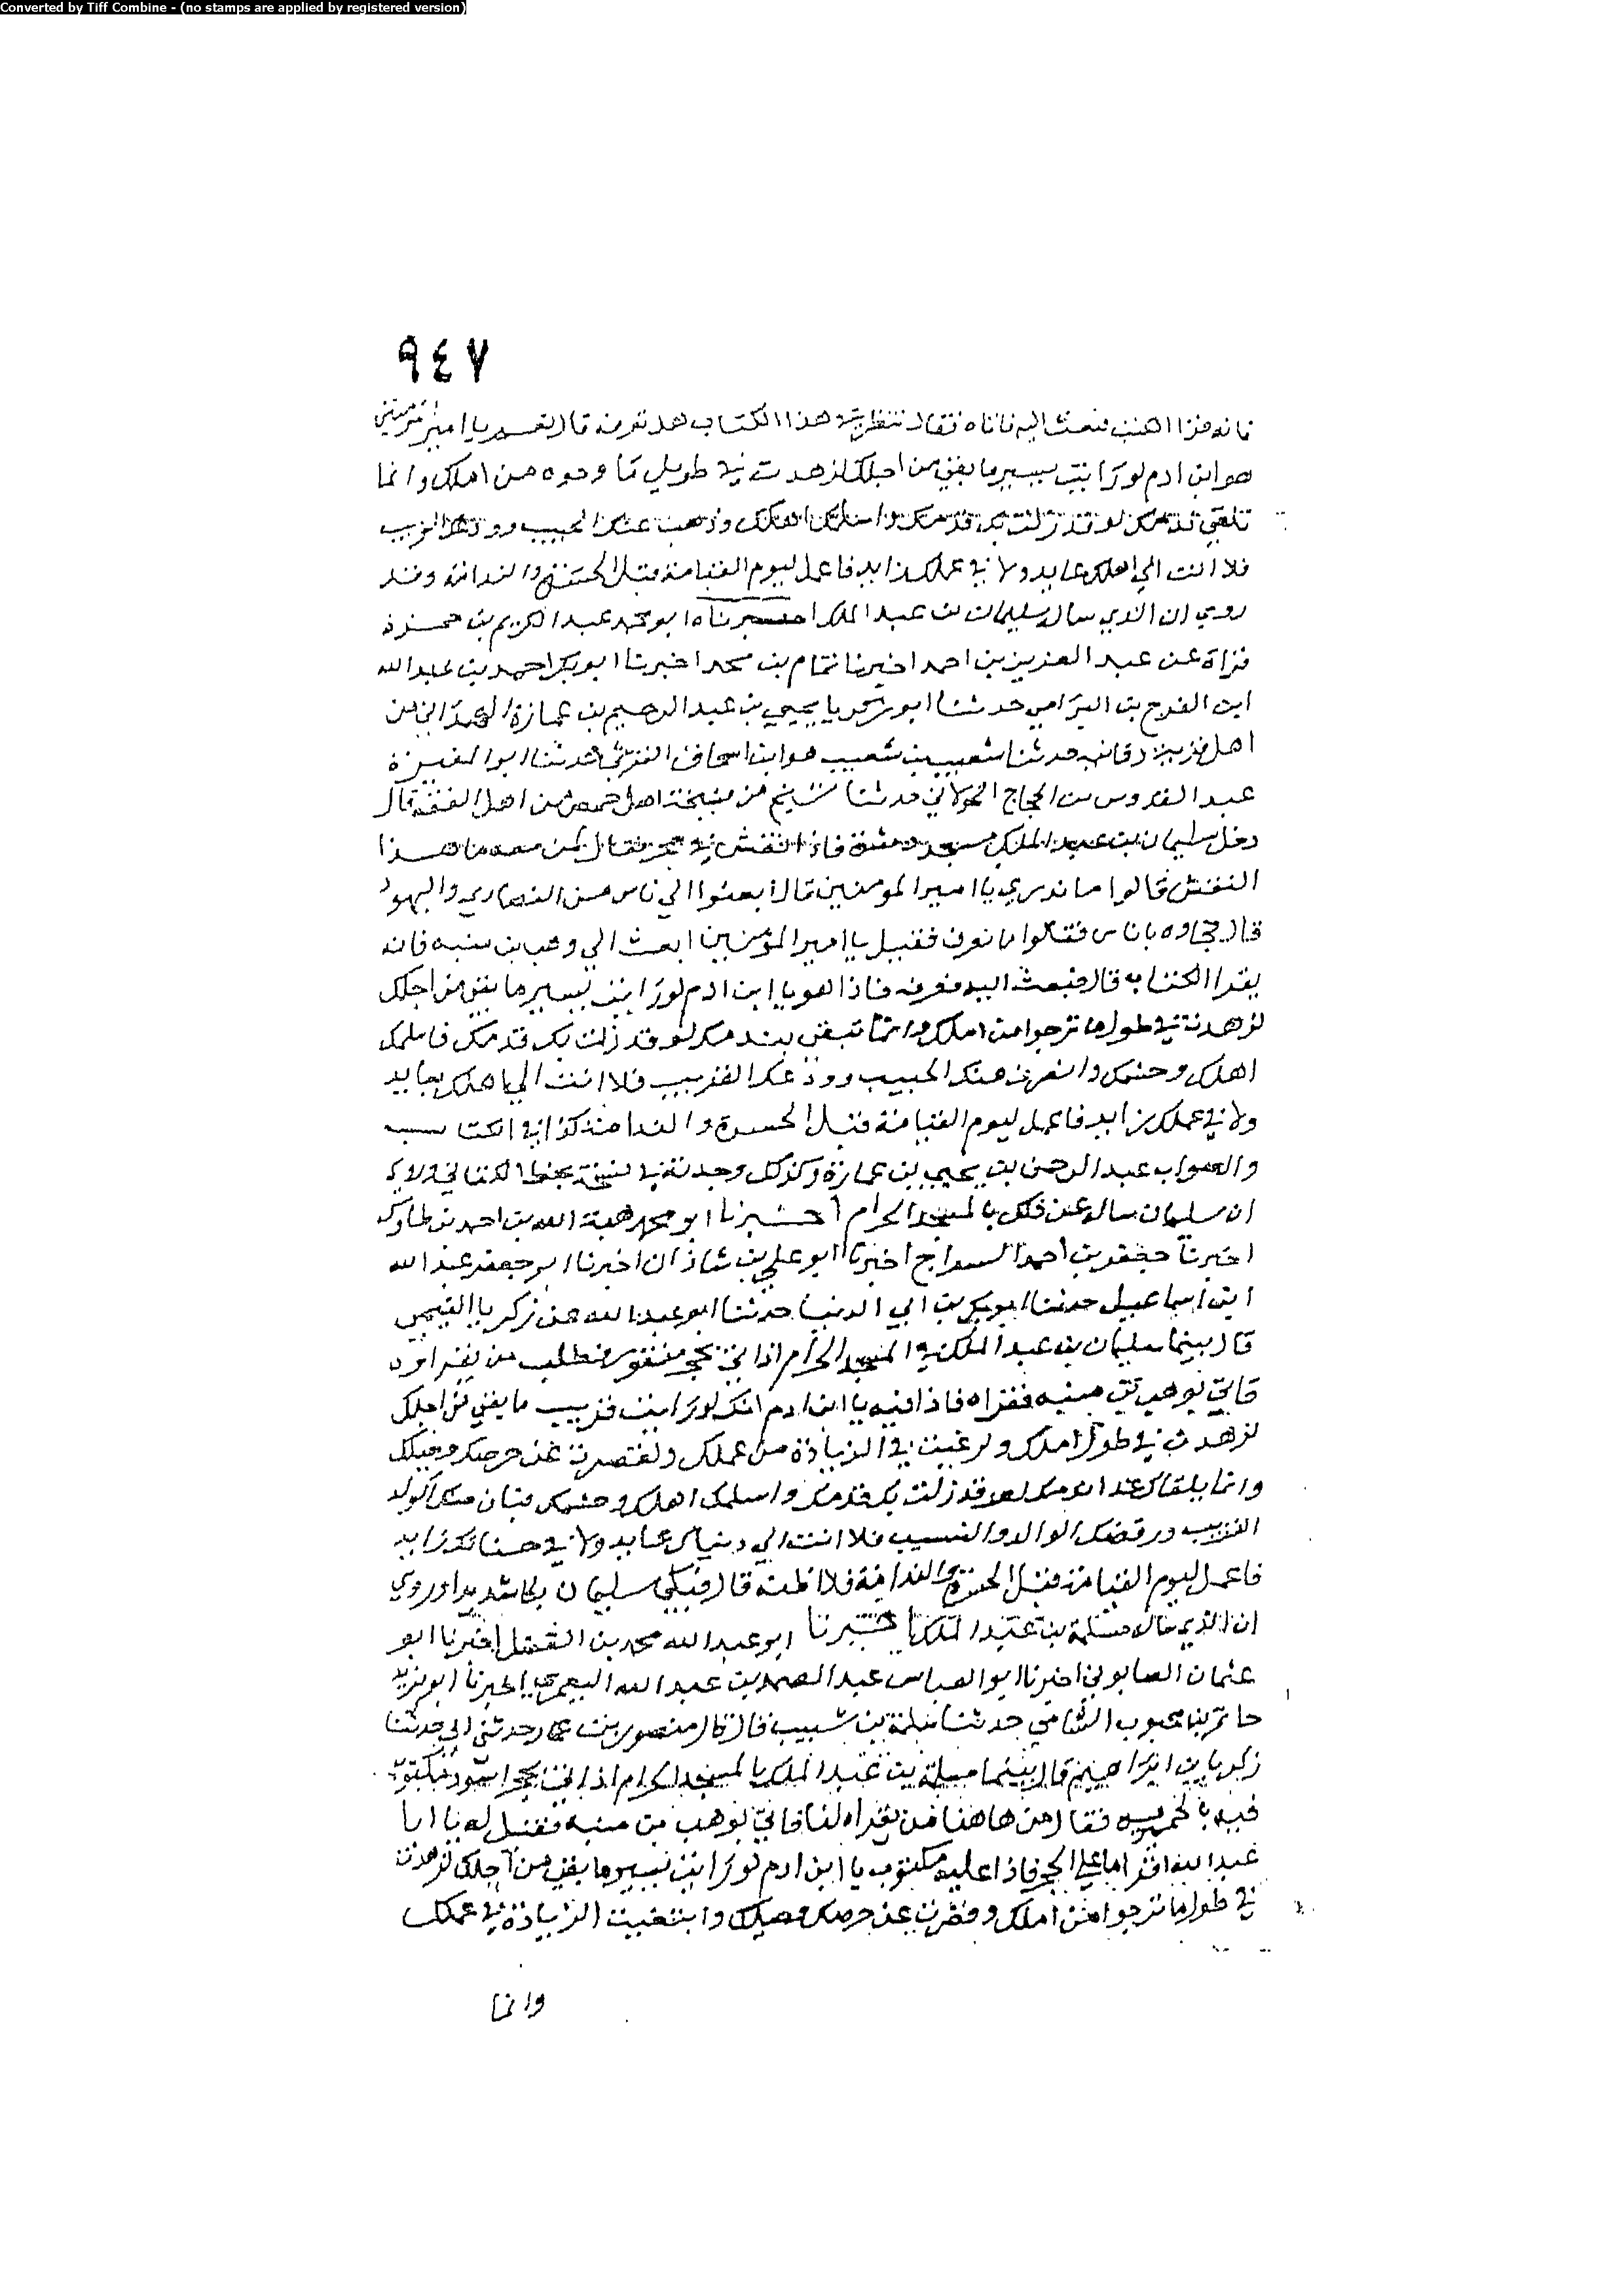 Converted by Tiff Combine - (no stamps are applied by registered version)
٩٤٧
فانه قرا الكتب فبعث اليه فاتاه فقال تنظر في هذا الكتاب هل تعرفه قال نعم يا امير المومنين
هو ابن ادم لو رايت يسير ما بقي من اجلك لزهدت في طويل ما ترجوه من املك وانما
تلقى ندمك لو قد زلت بك قدمك واسلمك اهلك وذهب عنك الحبيب وودعك القريب
فلا انت الي اهلك عايد ولا في عملك زايد فاعمل ليوم القيامة قبل الحسرة والندامة وقد
روي ان الذي ساله سليمان بن عبد الملك اخبرناه ابو محمد عبد الكريم بن حمزة
قراة عن عبد العزيز بن احمد اخبرنا تمام بن محمد اخبرنا ابو بكر احمد بن عبد الله
ابن الفرج بن البرامي حدثنا ابو زكريا يحيي بن عبد الرحيم بن عمارة الهمداني من
اهل قرية دقانيه حدثنا شعيب بن شعيب هو ابن اسحاق القرشي حدثنا ابو المغيرة
عبد القدوس بن الحجاج الخولاني حدثنا شيخ من مشيخة اهل حمص من اهل الفقه قال
دخل سليمان بن عبد الملك مسجد دمشق فاذا نقش في حجر فقال لمن معه ما هذا
النقش قالوا ما ندري يا امير المومنين قال ابعثوا الي ناس من النصاري واليهود
قال فجاوه بناس فقالوا ما نعرف فقيل يا امير المومنين ابعث الي وهب بن منبه فانه
يقرا الكتاب قال فبعث اليه فعرفه فاذا هو يا ابن ادم لو رايت يسير ما بقي من اجلك
لزهدت في طول ما ترجوا من املك وانما تبقى بندمك لو قد زلت بك قدمك فاسلمك
اهلك وحشمك وانصرف عنك الحبيب وودعك القريب فلا انت الي اهلك بعايد
ولا في عملك زايد فاعمل ليوم القيامة قبل الحسرة والندامة كذا في الكتاب
والصواب عبد الرحمن بن يحيي بن عمارة وكذلك وجدته في نسخة بخط الكتاني وروي
ان سليمان ساله عن ذلك بالمسجد الحرام اخبرنا ابو محمد هبة الله بن احمد بن طاوس
اخبرنا جعفر بن احمد السراج اخبرنا ابو علي بن شاذان اخبرنا ابو جعفر عبد الله
ابن اسماعيل حدثنا ابو بكر بن ابي الدنيا حدثنا ابو عبد الله عن زكريا التيمي
قال بينما سليمان بن عبد الملك في المسجد الحرام اذ اتي بحجر منقور فطلب من يقراوه
فاتي بوهب بن منبه فقراه فاذا فيه يا ابن ادم انك لو رايت قريب ما بقي من اجلك
لزهدت في طول املك ولرغبت في الزيادة من عملك ولقصرت عن حرصك وحيلك
وانما يلقاك غدا ندمك لو قد زلت بك قدمك واسلمك اهلك وحشمك فبان منك الولد
القريب ورفضك الوالد والنسيب فلا انت الي دنياك عايد ولا في حسناتك زايد
فاعمل ليوم القيامة قبل الحسرة والندامة قال فبكى سليمان بكا شديدا وروي
ان الذي ساله مسلمة بن عبد الملك اخبرنا ابو عبد الله محمد بن الفضل اخبرنا ابو
عثمان الصابوني اخبرنا ابو العباس عبد الصمد بن عبد الله اخبرنا ابو يزيد
حاتم بن محبوب الشامي حدثنا سلمة بن شبيب قال قال منصور بن عمار حدثني ابي حدثنا
زكريا بن ابراهيم قال بينما مسلمة بن عبد الملك بالمسجد الحرام اذ اتي بحجر اسود مكتوب
فيه فقال من هاهنا من يقراه لنا فاتي بوهب بن منبه فقيل له يا ابا
عبد الله اقرا ما علي الحجر فاذا عليه مكتوب يا ابن ادم لو رايت يسير ما بقي من اجلك لزهدت
في طول ما ترجوا من املك وقصرت عن حرصك وحيلك وابتغيت الزيادة في عملك
وانما